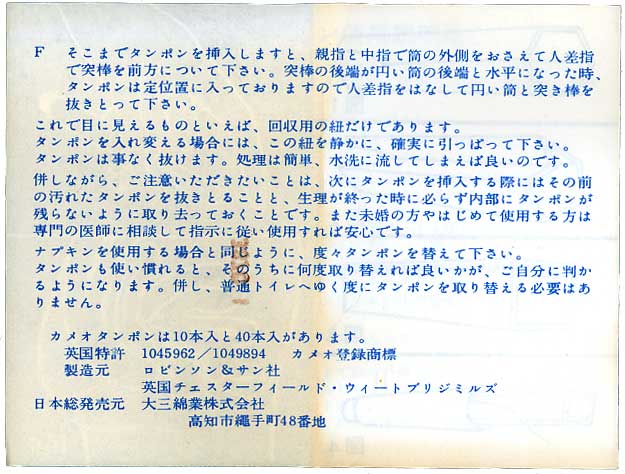 F　そこまでタンポンを挿入しますと、親指と中指で筒の外側をおさえて人差指
で突棒を前方について下さい。突棒の後端が円い筒の後端と水平になった時、
タンポンは定位置に入っておりますので人差指をはなして円い筒と突き棒を
抜きとって下さい。
これで目に見えるものといえば、回収用の紐だけであります。
タンポンを入れ変える場合には、この紐を静かに、確実に引っぱって下さい。
タンポンは事なく抜けます。処理は簡単、水洗に流してしまえば良いのです。
併しながら、ご注意いただきたいことは、次にタンポンを挿入する際にはその前
の汚れたタンポンを抜きとることと、生理が終った時に必らず内部にタンポンが
残らないように取り去っておくことです。また未婚の方やはじめて使用する方は
専門の医師に相談して指示に従い使用すれば安心です。
ナプキンを使用する場合と同じように、度々タンポンを替えて下さい。
タンポンも使い慣れると、そのうちに何度取り替えれば良いかが、ご自分に判か
るようになります。併し、普通トイレへゆく度にタンポンを取り替える必要はあ
りません。
カメオタンポンは10本入と40本入があります。
英国特許　1045962／1049894　カメオ登録商標
製造元　ロビンソン&サン社
英国チェスターフィールド・ウィートブリジミルズ
日本総発売元　大三綿業株式会社
高知市縄手町48番地